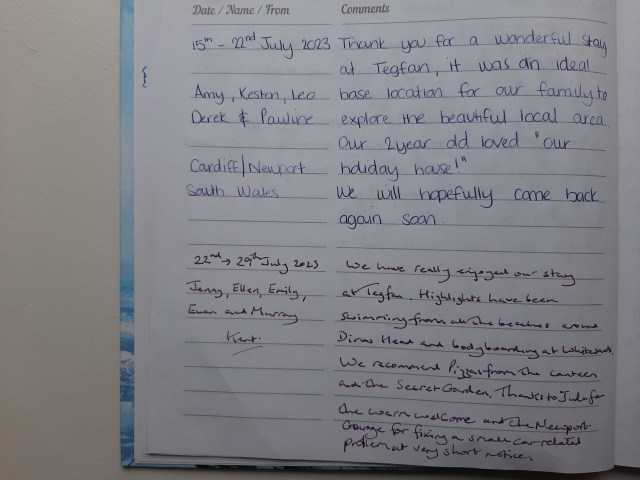 Date / Name / From Comments
15th - 22nd July 2023 Thank you for a wonderful stay
at Tegfan, it was an ideal
Amy, Keston, Leo base location for our family to
Derek & Pauline explore the beautiful local area.
Our 2year old loved "our
Cardiff/Newport holiday house!"
South Wales We will hopefully come back
again soon.
22nd → 29th July 2023 We have really enjoyed our stay
Jenny, Ellen, Emily, at Tegfan. Highlights have been
Euan and Murray swimming from all the beaches around
Kent. Dinas Head and bodyboarding at Whitesands.
We recommend Pizzas from the canteen
and the Secret Garden. Thanks to Jude for
the warm welcome and the Newport
Garage for fixing a small car related
problem at very short notice.